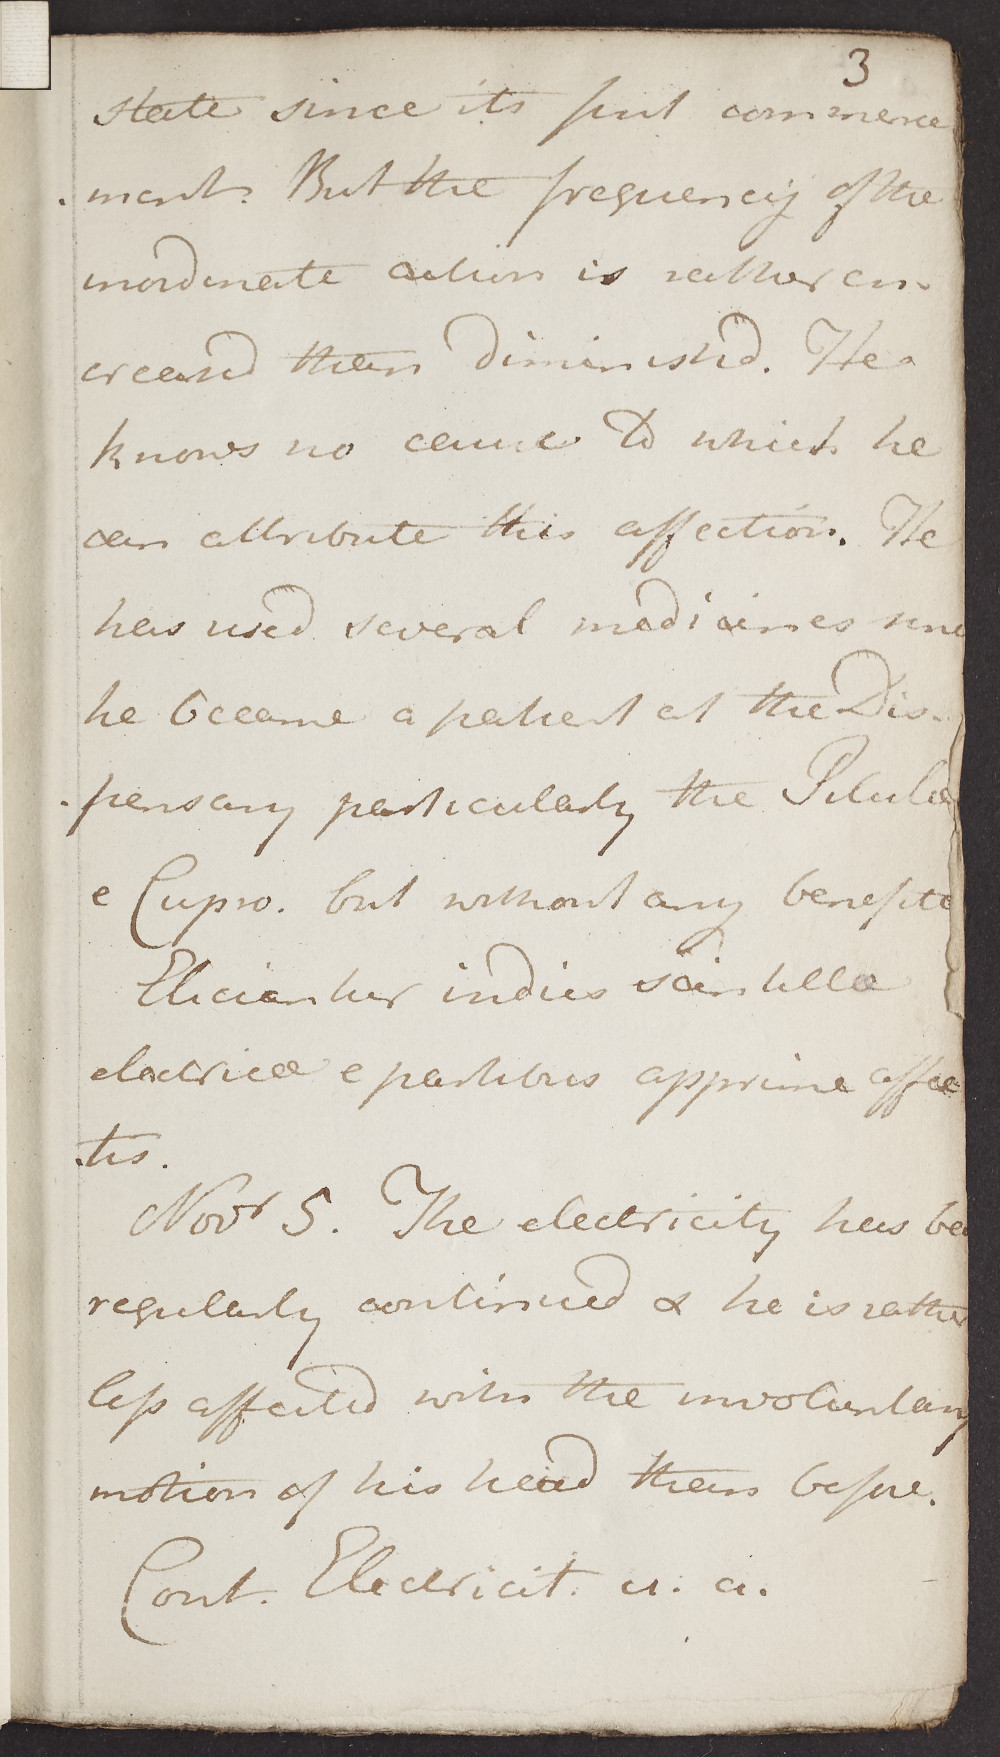 3
state since its first commence
-ment. But the frequency of the
inordinate action is rather en-
creased than diminish'd. He
knows no cause to which he
can attribute this affection. He
has used several medicines since
he became a patient at the Dis-
-pensary particularly the Pilulæ
e Cupro. but without any benefite
Eliciantur indies scintillæ
electricæ e partibus apprime affec
-tis.
Novr 5. The electricity has been
regularly continued & he is rather
less affected with the involuntary
motion of his head than before.
Cont. Electricit. u. a.